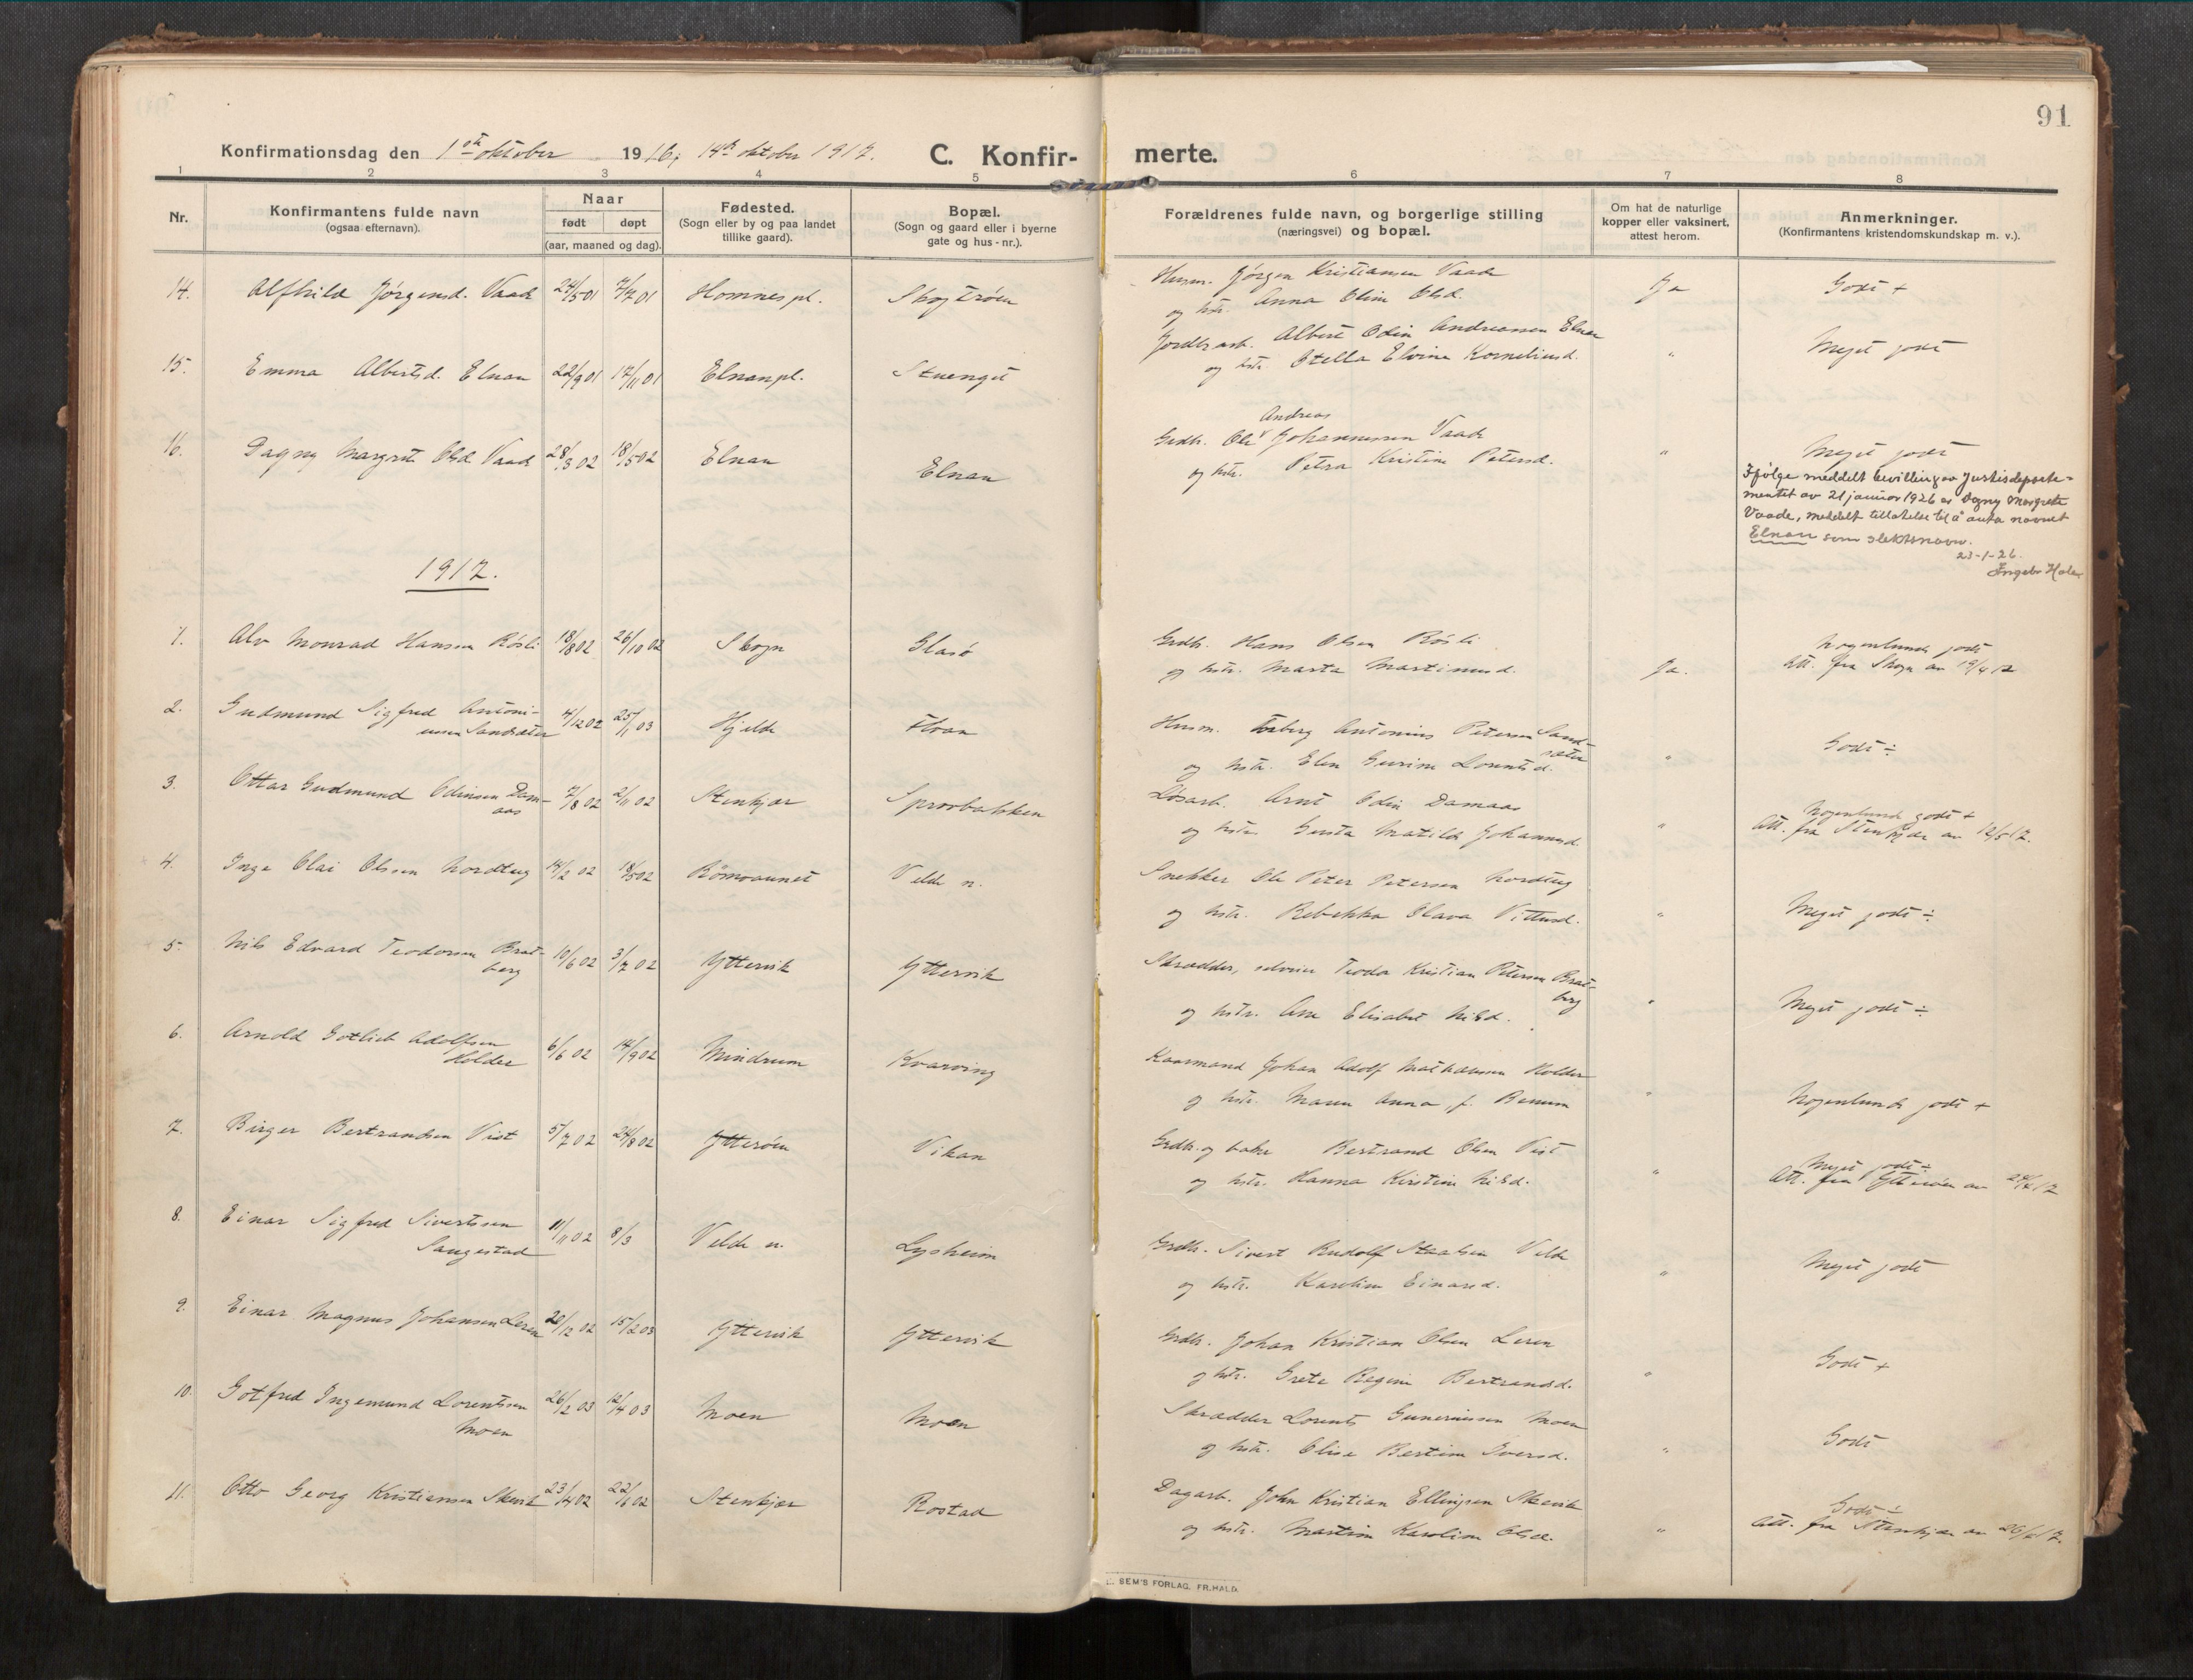 91
Konfirmationsdag den 1ste oktober 1916; 14de oktober 1917. C. Konfirmerte.
1 2 3 4 5 6 7 8
Nr.
Konfirmantens fulde navn
(ogsaa efternavn).
Naar
født døpt
(aar, maaned og dag).
Fødested.
(Sogn eller by og paa landet
tillike gaard).
Bopæl.
(Sogn og gaard eller i byerne
gate og hus-nr.).
Forældrenes fulde navn, og borgerlige stilling
(næringsvei) og bopæl.
Om hat de naturlige
kopper eller vaksinert,
attest herom.
Anmerkninger.
(Konfirmantens kristendomskundskap m. v.).
14. Alfhild Jørgensd. Vaade 24/5 01 7/7 01 Homnes pl. Skogtrøen
Husm. Jørgen Kristiansen Vaade
og hstr. Anna Oline Olsd.
Ja Godt +
15. Emma Albertsd. Elnan 22/9 01 17/11 01 Elnan pl. Stuenget
Jordbr.arb. Albert Odin Andreassen Elnan
og hstr. Otella Elvine Korneliusd.
" Meget godt
16. Dagny Margrete Olsd. Vaade 28/3 02 18/5 02 Elnan Elnan
Andreas
Grdbr. Ole Johannessen Vaade
og hstr. Petra Kristine Petersd.
" Meget godt
Ifølge meddelt bevilling av Justisdeparte-
mentet av 21 januar 1926 er Dagny Margrete
Vaade, meddelt tillatelse til å anta navnet
Elnan som slektsnavn.
23-1-26.
1917.
1. Alv Monrad Hansen Røsli 18/8 02 26/10 02 Skogn Glasø
Grdbr. Hans Olsen Røsli
og hstr. Marta Martinusd.
Ja. Nogenlunde godt
Att. fra Skogn av 19/4 17
2. Gudmund Sigfred Antoni-
ussen Sandsæter 4/12 02 25/1 03 Hjelde Floan
Husm. Torberg Antonius Petersen Sand-
sæter
og hstr. Elen Gurine Lorntsd.
" Godt ÷
3. Ottar Gudmund Odinsen Dam-
aas 7/8 02 2/11 02 Stenkjær Sprovbakken
Løsarb. Arnt Odin Damaas
og hstr. Gusta Matilde Johannesd.
" Nogenlunde godt +
Att. fra Stenkjær av 12/5 17.
4. Inge Olai Olssen Nordtug 14/2 02 18/5 02 Rømoaunet Velde n.
Snekker Ole Peter Petersen Nordtug
og hstr. Rebekka Olava Vittusd.
" Meget godt ÷
5. Nils Edvard Teodorsen Brat-
berg 10/6 02 3/7 02 Yttervik Yttervik
Skrædder, selveier Teodor Kristian Petersen Brat-
berg
og hstr. Ane Elisabet Nilsd.
" Meget godt ÷
6. Arnold Gotlieb Adolfsen
Holder 6/6 02 14/9 02 Mindrum Kvarving
Kaarmand Johan Adolf Mathæussen Holder
og hstr. Maren Anna f. Renum
" Nogenlunde godt +
7. Birger Bertrandsen Vist 5/7 02 24/8 02 Ytterøen Vikan
Grdbr. og baker Bertrand Olsen Vist
og hstr. Hanna Kirstine Nilsd.
" Meget godt ÷
Att. fra Ytterøen av
8. Einar Sigfred Sivertssen
Saugestad 11/11 02 8/3 Velde n. Lysheim
Grdbr. Sivert Rudolf Velde
og hstr. Karoline Einarsd.
" Meget godt
9. Einar Magnus Johansen Leren 20/12 02 15/2 03 Yttervik Yttervik
Grdbr. Johan Kristian Olsen Leren
og hstr. Grete Regine Bertrandsd.
" Godt +
10. Gotfred Ingemund Lorentsen
Moen 26/2 03 12/4 03 Moen Moen
Skrædder Lorents Guneriussen Moen
og hstr. Elise Bertine Iversd.
" Godt
11. Otto Georg Kristiansen Skevik 23/4 02 22/6 02 Stenkjær Rostad
Dagarb. John Kristian Ellingsen Skevik
og hstr. Martine Karoline Olsd.
" Godt ÷
Att. fra Stenkjær av
SEM'S FORLAG, FR.HALD.